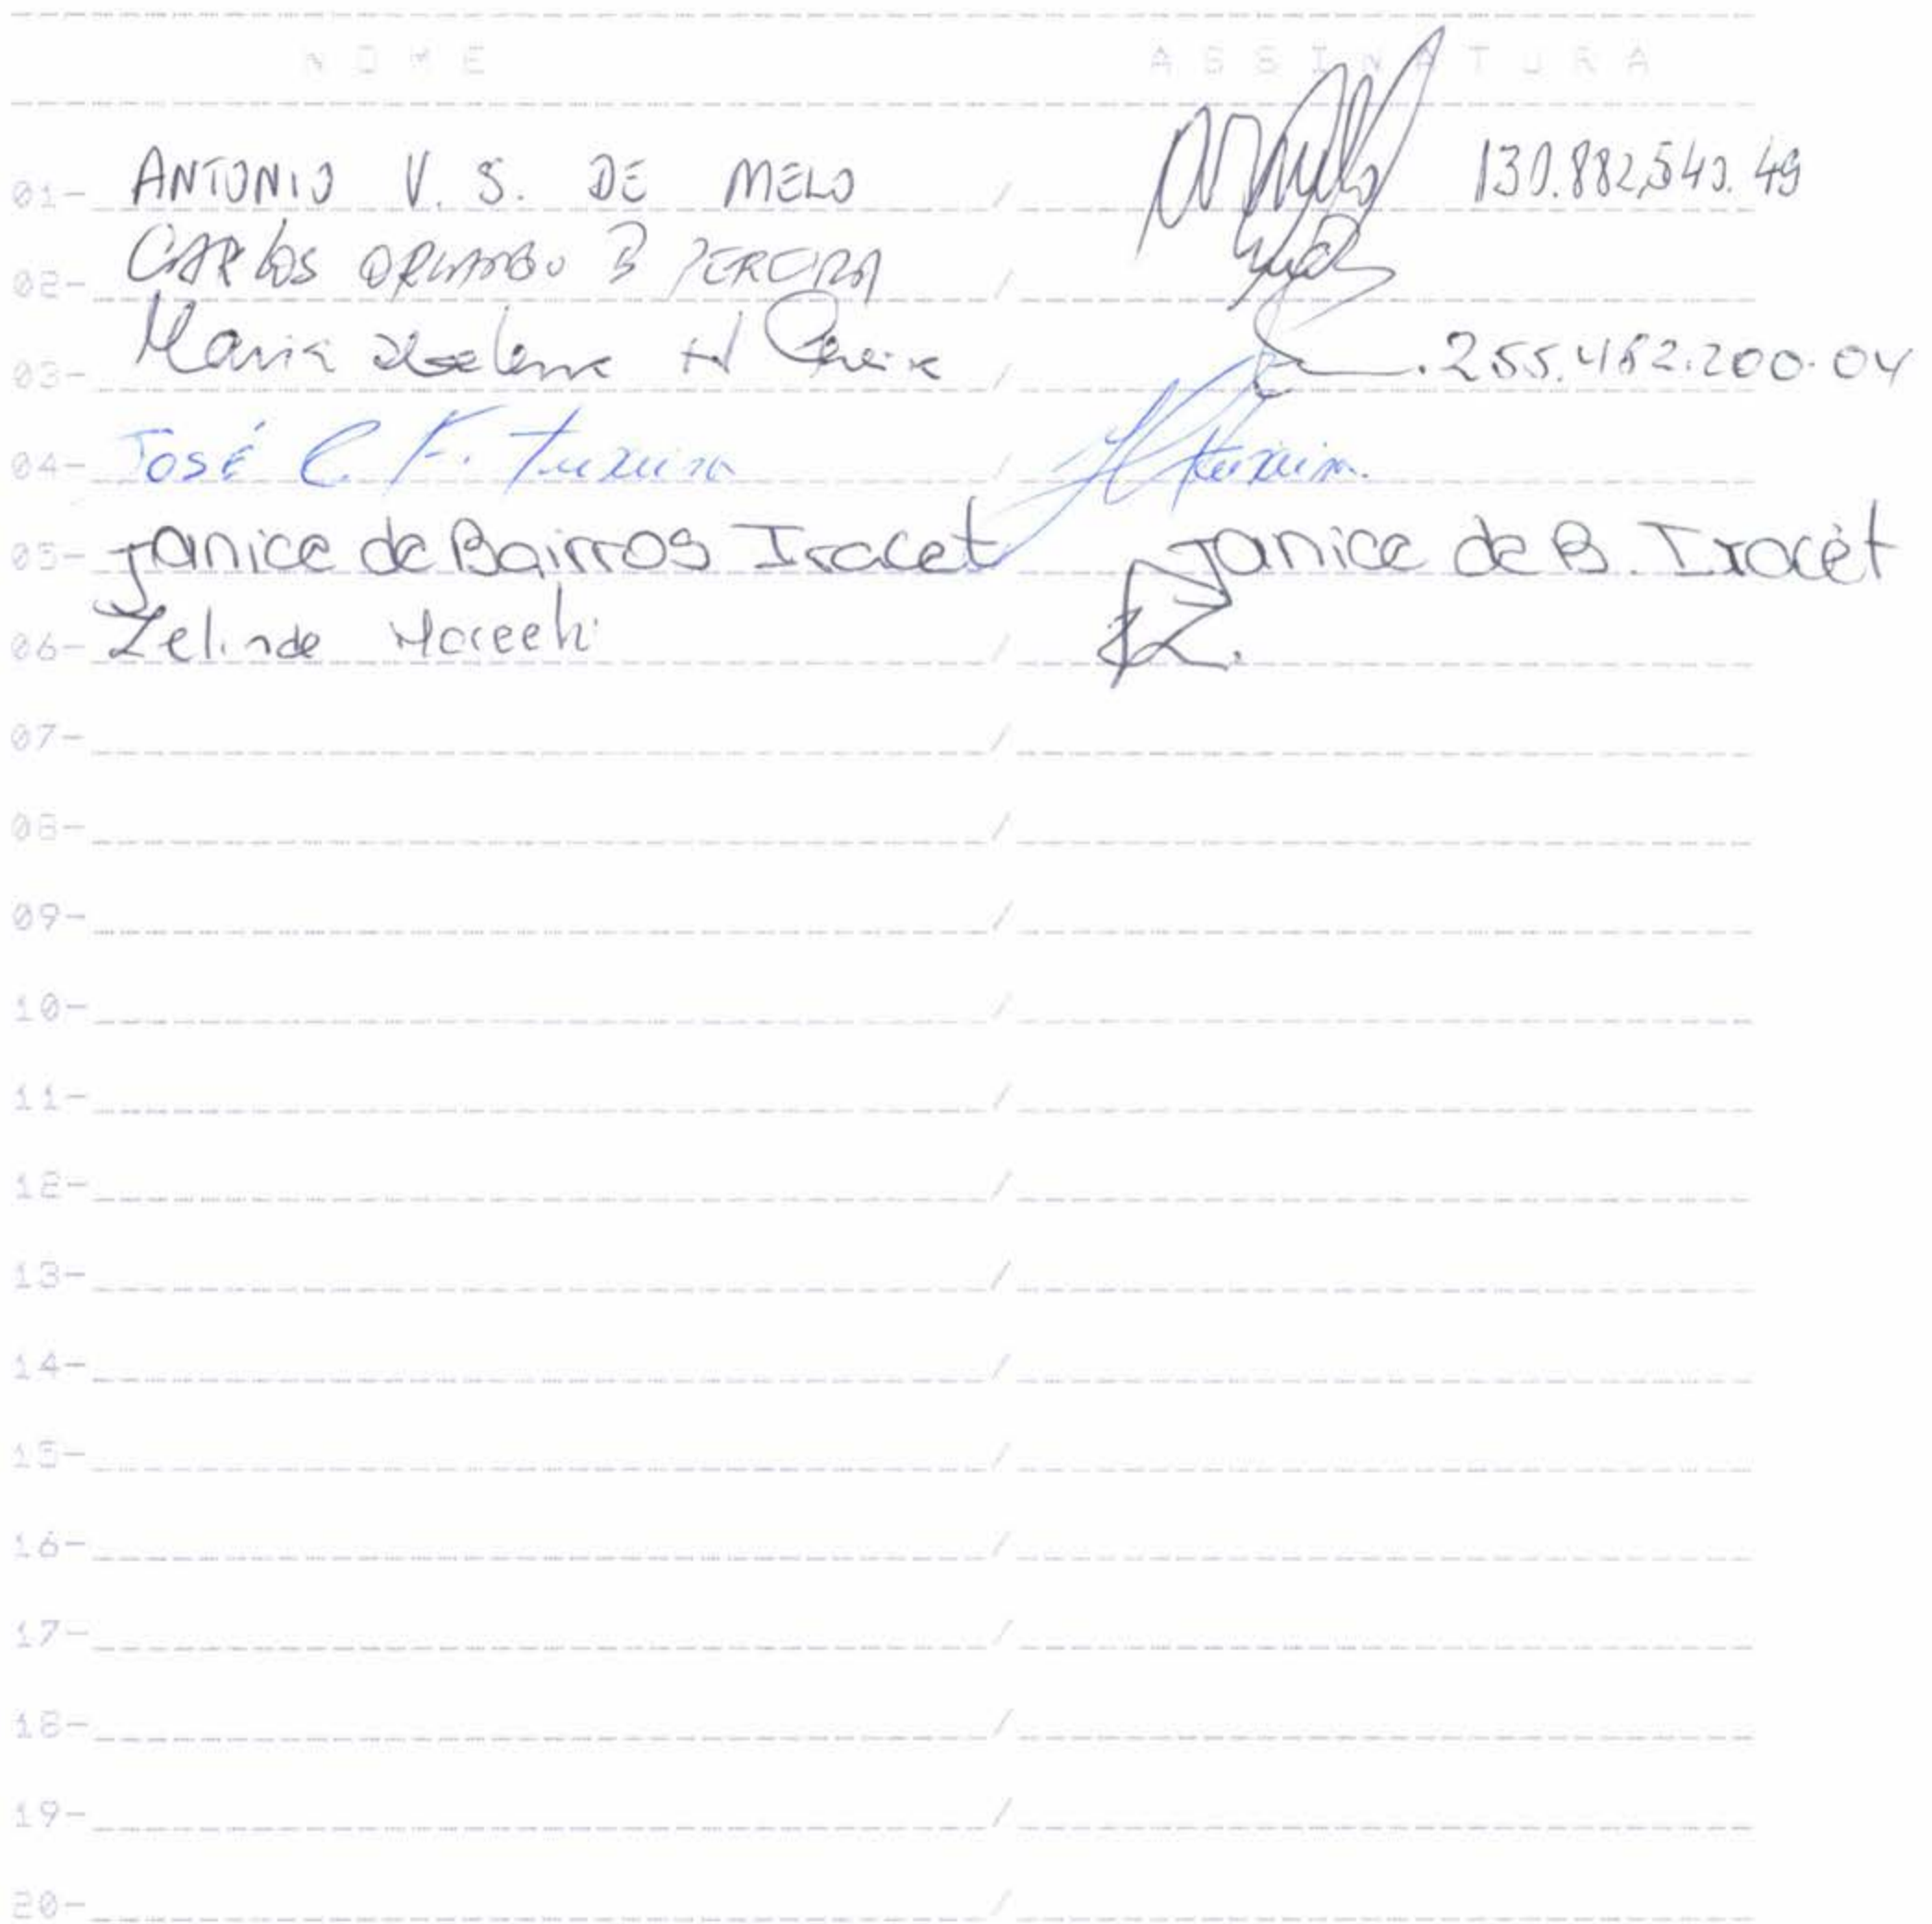 NOME ASSINATURA
01- ANTONIO V. S. DE MELO / 130.882.540.49
02- CARLOS ORLANDO B PEREIRA /
03- Maria N Pereira / .255.482.200.04
04- JOSÉ C. F. Teixeira / Teixeira.
05- Janice de Bairros Iracet Janice de B. Iracèt
06- Zelinde /
07- /
08- /
09- /
10- /
11- /
12- /
13- /
14- /
15- /
16- /
17- /
18- /
19- /
20- /